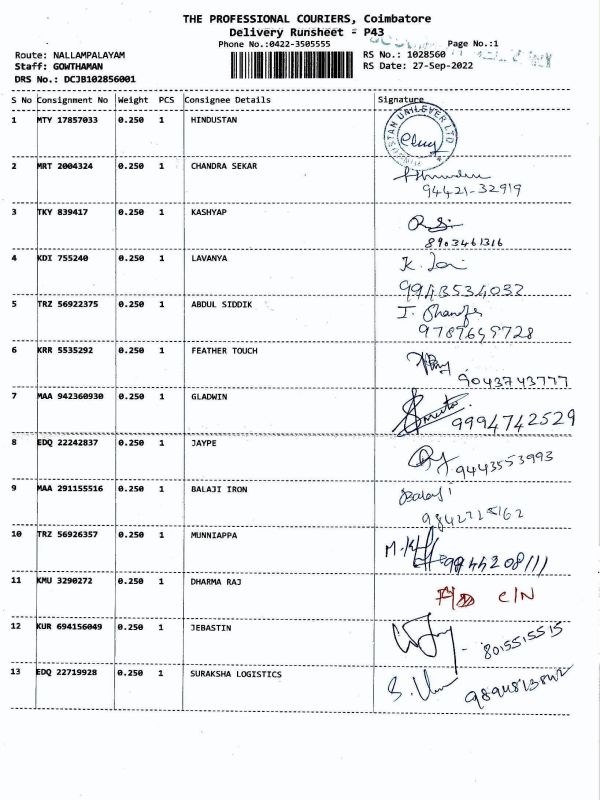 THE PROFESSIONAL COURIERS, Coimbatore
Delivery Runsheet - P43
Phone No.:0422-3505555 Page No.:1
Route: NALLAMPALAYAM RS No.: 1028560
Staff: GOWTHAMAN RS Date: 27-Sep-2022
DRS No.: DCJB102856001
S No Consignment No Weight PCS Consignee Details Signature
1 MTY 17857033 0.250 1 HINDUSTAN
HINDUSTAN UNILEVER LTD
2 MRT 2004324 0.250 1 CHANDRA SEKAR
94421-32919
3 TKY 839417 0.250 1 KASHYAP
8903461316
4 KDI 755240 0.250 1 LAVANYA
9943534032
5 TRZ 56922375 0.250 1 ABDUL SIDDIK
9787659728
6 KRR 5535292 0.250 1 FEATHER TOUCH
9043743777
7 MAA 942360930 0.250 1 GLADWIN
9994742529
8 EDQ 22242837 0.250 1 JAYPE
9443553993
9 MAA 291155516 0.250 1 BALAJI IRON
Balaji
10 TRZ 56926357 0.250 1 MUNNIAPPA
9944208111
11 KMU 3290272 0.250 1 DHARMA RAJ
C/N
12 KUR 694156049 0.250 1 JEBASTIN
8015515515
13 EDQ 22719928 0.250 1 SURAKSHA LOGISTICS